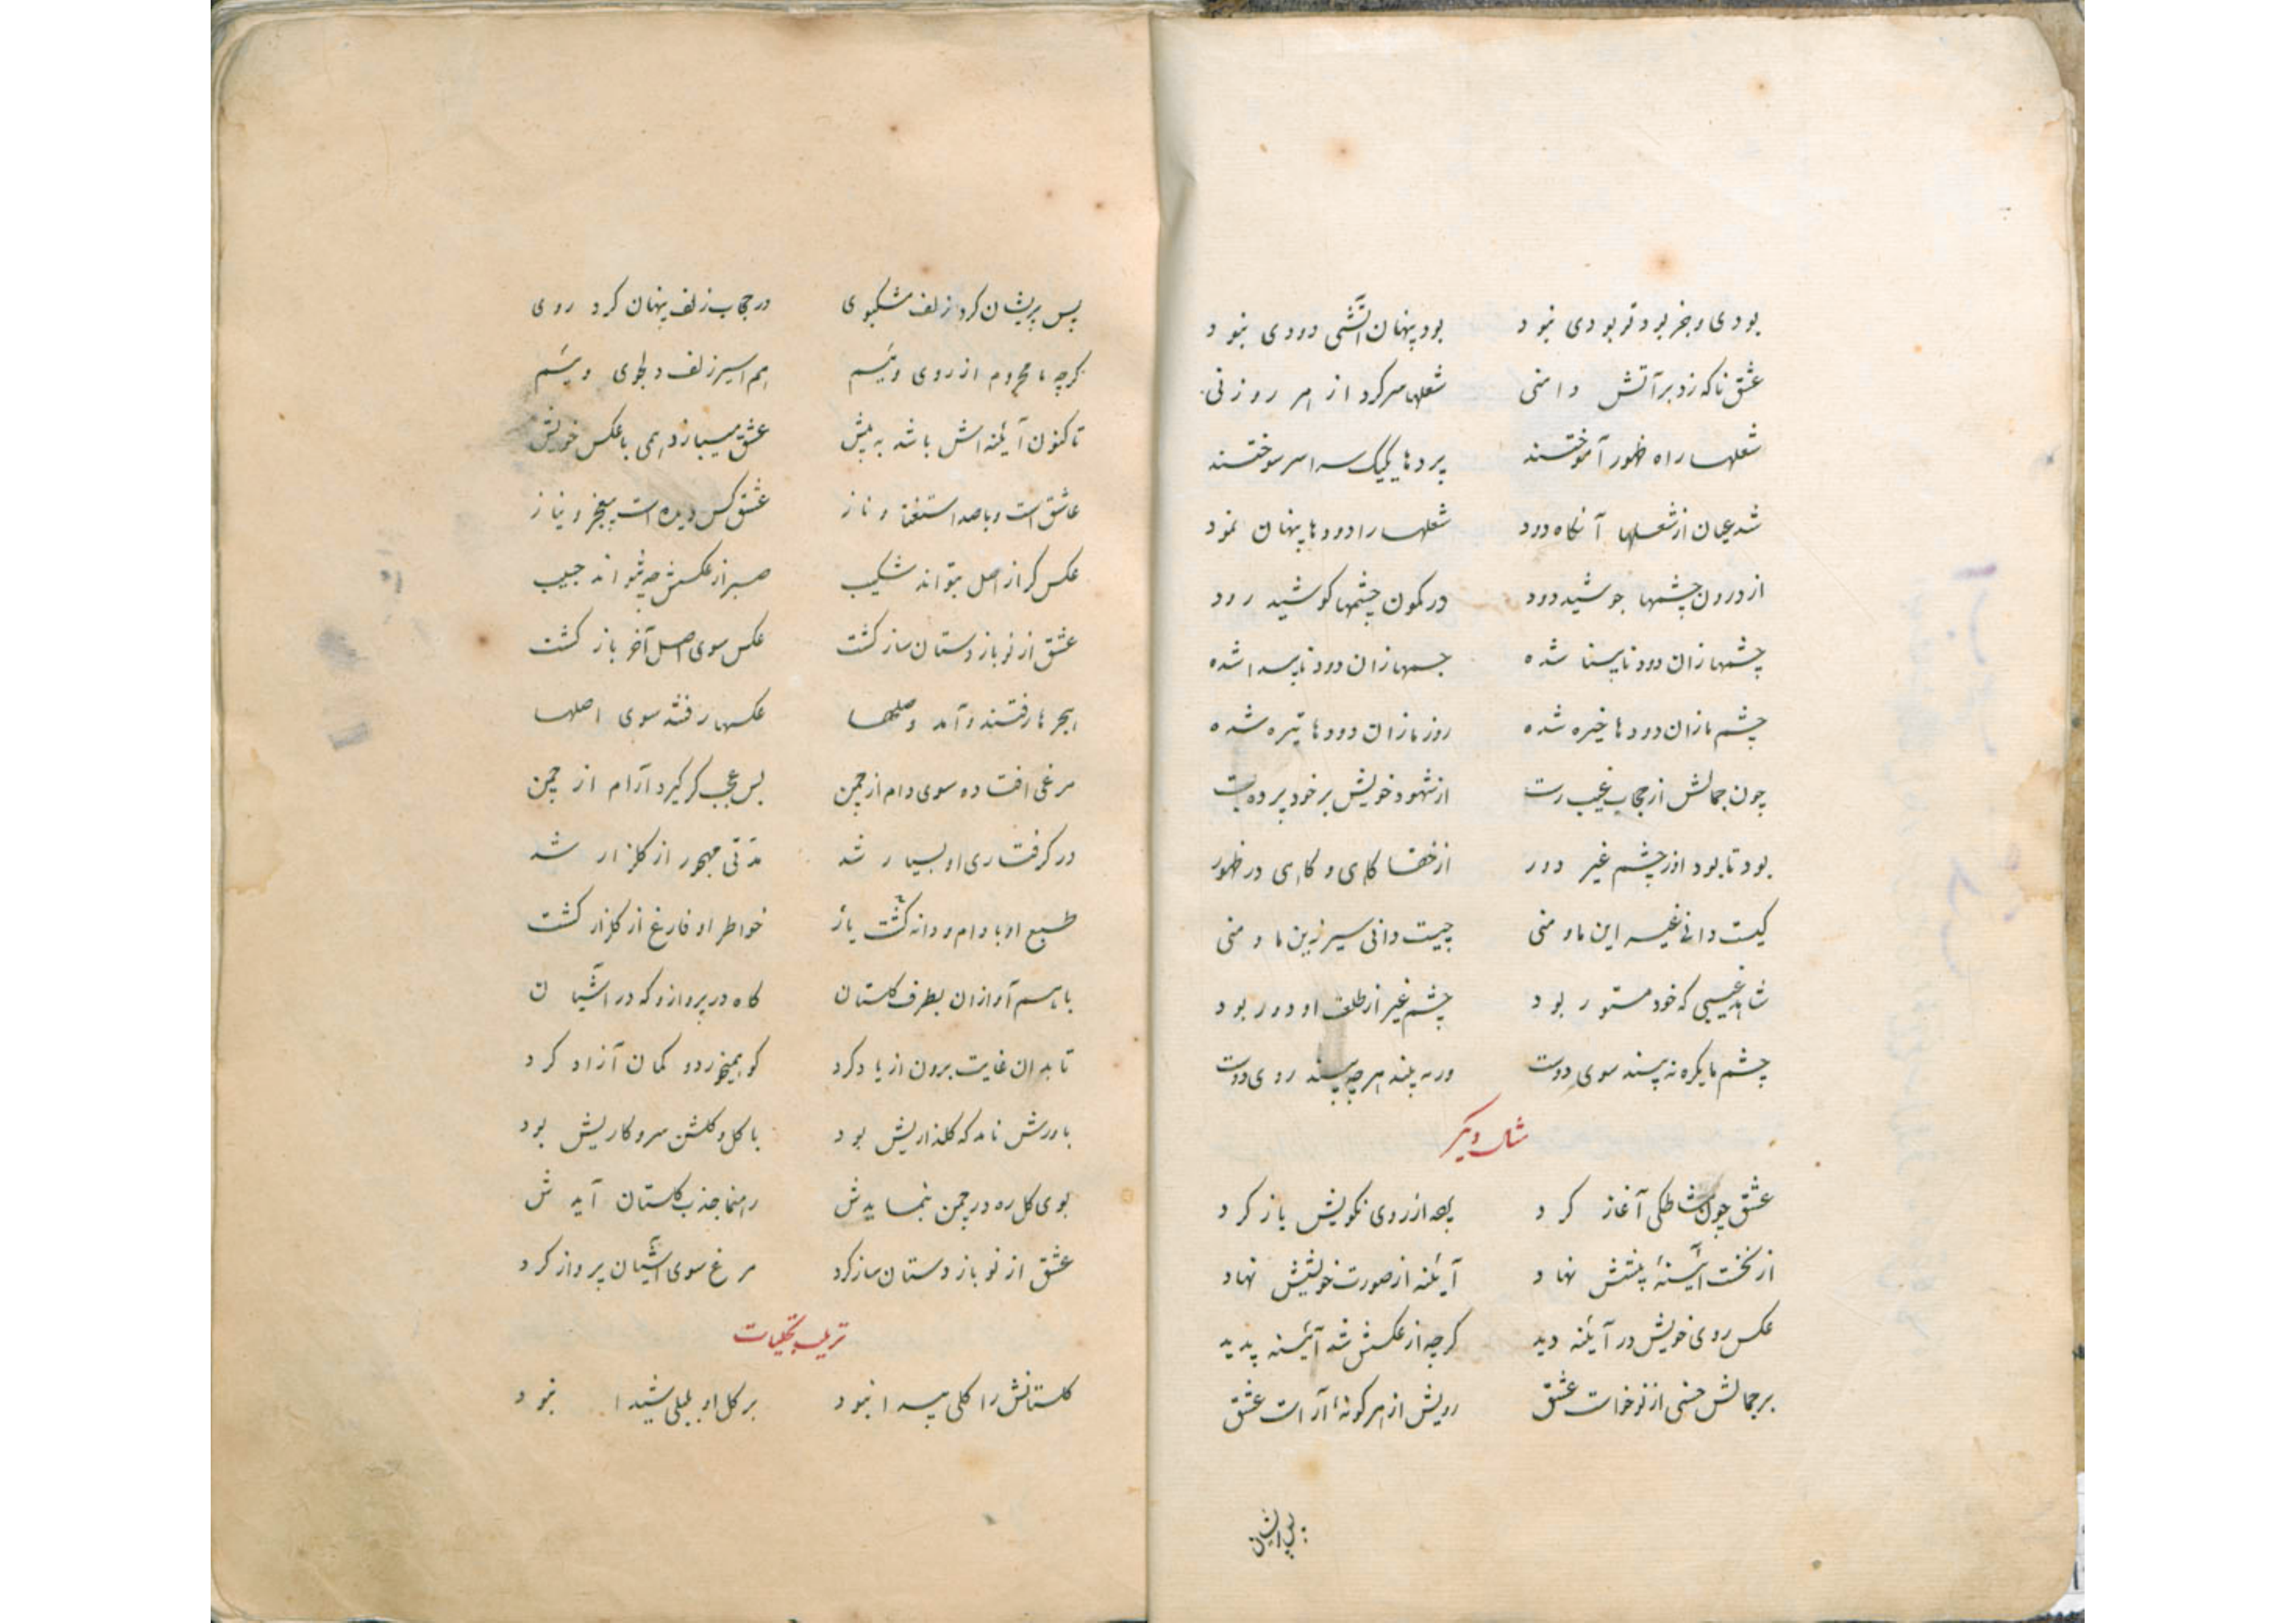 بودی و جز بود تو بودی نبود بود پنهان آتشی دودی نبود
عشق ناکه زد بر آتش دامنی شعلها سرکرد از هر روزنی
شعلها راه ظهور آموختند پردها یکیک سراسر سوختند
شد عیان از شعلها آنکاه دود شعلها را دودها پنهان نمود
از درون چشمها جوشید دود در کمون چشمها کوشید رود
چشمها زان دود نابینا شده جسمها زان دود ناپیدا شده
چشم ما زان دودها خیره شده روز ما زان دودها تیره شده
چون جمالش از حجاب غیب رست از شهود خویش بر خود پرده بست
بود تا بود او ز چشم غیر دور از خفا کاهی و کاهی در ظهور
کیست دانی غیر این ما و منی چیست دانی سیر زین ما و منی
شاهد غیبی که خود مستور بود چشم غیر از طلعت او دور بود
چشم ما یکره نه بیند سوی دوست ورنه بیند هر چه بیند روی دوست
مثال دیکر
عشق چون مشاطکی آغاز کرد از روی نکویش باز کرد
از نخست آئینهٔ پیشش نهاد آینه از صورت خویشش نهاد
عکس روی خویش در آینه دید کرچه از عکسش شد آئینه پدید
بر جمالش حسنی از نو خواست عشق رویش از هر کونهٔ آراست عشق
پس پریشان
پس پریشان کرد زلف مشکبوی در حجاب زلف پنهان کرد روی
کرچه ما محروم از روی ویئیم هم اسیر زلف دلجوی وییئم
تا کنون آینه اش باشد به پیش عشق میبازد همی با عکس خویش
عاشق است و با صد استغنا و ناز عشق کس دیده است بیعجز و نیاز
عکس کر از اصل بتواند شکیب صبر از عکسش چه بتواند حبیب
عشق از نو باز دستان ساز کشت عکس سوی اصل آخر باز کشت
هجرها رفتند و آمد وصلها عکسها رفته سوی اصلها
مرغی افتاده سوی دام از چمن بس عجب کر کیرد آرام از چمن
در کرفتاری او بسیار شد مدتی مهجور از کلزار شد
طبع او با دام و دانه کشت یار خواطر او فارغ از کلزار کشت
با هم آوازان بطرف کلستان کاه در پرواز و که در آشیان
تا بدان غایت برون از یاد کرد کو همیخوردو کمان آزاد کرد
باورش نامد که کلذاریش بود با کل و کلشن سر و کاریش بود
بوی کل ره در چمن بنمایدش رهنما جذب کلستان آیدش
عشق از نو باز دستان ساز کرد مرغ سوی آشیان پرواز کرد
ترتیب تجلیات
کلستانش را کلی پیدا نبود بر کل او بلبلی شیدا نبود